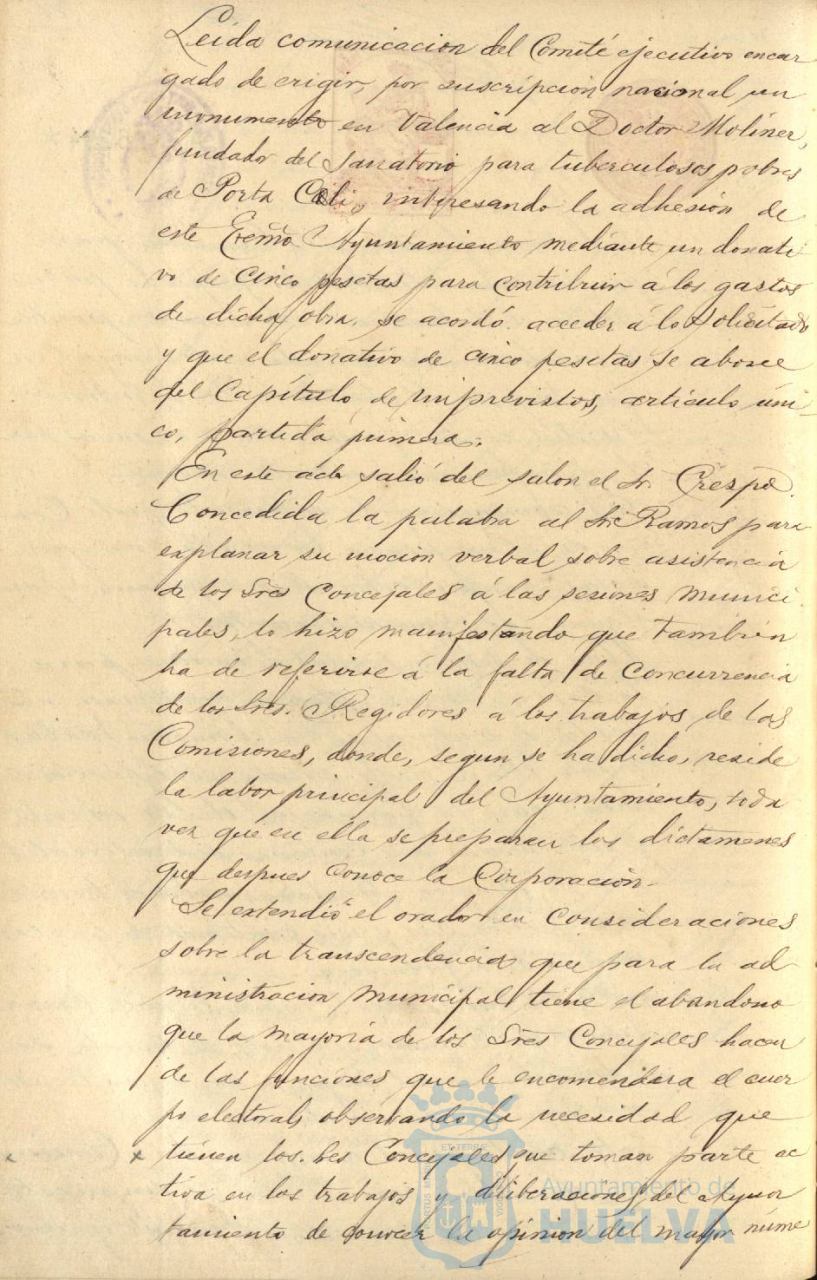 Leida comunicacion del Comité ejecutivo encar
gado de erigir, por suscripcion nacional un
monumento en Valencia al Doctor Moliner,
fundador del Sanatorio para tuberculosos pobres
de Porta Celi, interesando la adhesión de
este Excmo Ayuntamiento mediante un donati-
vo de cinco pesetas para contribuir á los gastos
de dicha obra, se acordó acceder á lo solicitado
y que el donativo de cinco pesetas se abone
del Capítulo de imprevistos, artículo úni-
co, partida primera.
En este acto salió del salon el Sr. Crespo.
Concedida la palabra al Sr. Ramos para
explanar su mocion verbal sobre asistencia
de los Sres Concejales á las sesiones munici-
pales, lo hizo manifestando que tambien
ha de referirse á la falta de concurrencia
de los Sres. Regidores á los trabajos de las
Comisiones, donde, segun se ha dicho, reside
la labor principal del Ayuntamiento, toda
vez que en ella se preparan los dictamenes
que despues conoce la Corporación.
Se extendió el orador en consideraciones
sobre la transcendencia que para la ad-
ministracion municipal tiene el abandono
que la mayoría de los Sres Concejales hacen
de las funciones que le encomendara el cuer
po electoral, observando la necesidad que
tienen los Sres Concejales que toman parte ac
tiva en los trabajos y deliberaciones del Ayun
tamiento de conocer la opinion del mayor núme
Ayuntamiento de
HUELVA